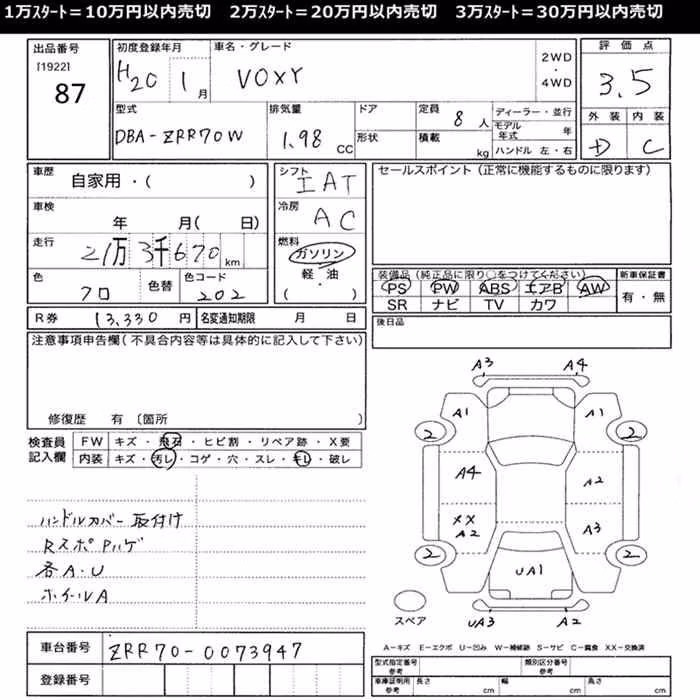 1万ｽﾀｰﾄ＝10万円以内売切　2万ｽﾀｰﾄ＝20万円以内売切　3万ｽﾀｰﾄ＝30万円以内売切
出品番号
[1922]
87
初度登録年月
H20 1月
車名・グレード
VOXY
2WD
・
4WD
評価点
3.5
外装 内装
D C
型式
DBA-ZRR70W
排気量
1.98 CC
ドア
形状
定員 8人
積載 kg
ディーラー・並行
モデル年式 年
ハンドル 左・右
車歴
自家用・( )
車検
年 月( 日)
走行
21万3千670 km
色
クロ
色替
色コード
202
シフト
IAT
冷房
AC
燃料
ガソリン
・
軽・油
( )
セールスポイント（正常に機能するものに限ります）
装備品（純正品に限り○をつけてください）
PS PW ABS エアB AW
SR ナビ TV カワ
新車保証書
有・無
R券 13,330 円 名変通知期限 月 日
後日品
注意事項申告欄（不具合内容等は具体的に記入して下さい）
修復歴 有 〔箇所 〕
検査員
記入欄
FW キズ・飛石・ヒビ割・リペア跡・X要
内装 キズ・汚レ・コゲ・穴・スレ・キレ・破レ
ハンドルカバー取付け
RスポPハゲ
各A・U
ホイールA
車台番号 ZRR70-0073947
登録番号
A3 A4
A1 A1
2 2
A4 A2
XX
A2 A3
2 2
UA1
スペア
UA3 A2
A－キズ E－エクボ U－凹み W－補修跡 S－サビ C－腐食 XX－交換済
型式指定番号
参考
類別区分番号
参考
車庫証明用
参考
長さ cm 幅 cm 高さ cm